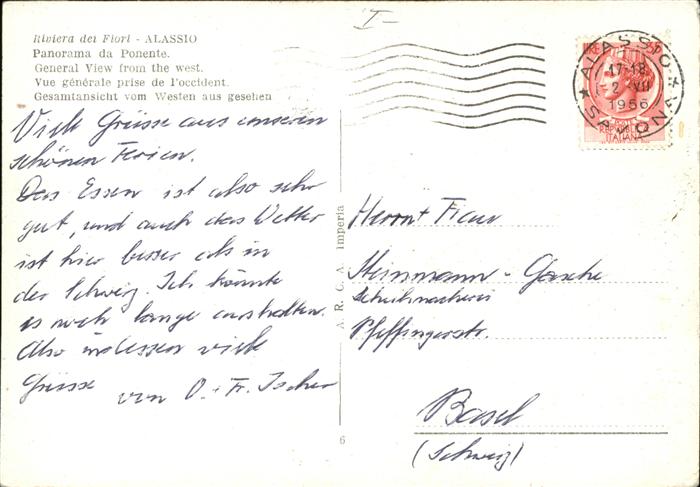 I-
Riviera dei Fiori - ALASSIO
Panorama da Ponente.
General View from the west.
Vue générale prise de l'occident.
Gesamtansicht vom Westen aus gesehen
Viele Grüsse aus unseren
schönen Ferien.
Das Essen ist also sehr
gut, und auch das Wetter
ist hier besser als in
der Schweiz. Ich könnte
es noch lange aushalten.
Also indessen viele
Grüsse von O. + Fr. Tscher
A. R. C. A. Imperia
6
LIRE
ALASSIO * SAVONA *
17-18
2 VII
1956
POSTE
REPUBBLICA
ITALIANA
Herrn + Frau
Steinmann - Gasche
Schuhmacherei
Pfeffingerstr.
Basel
(Schweiz)